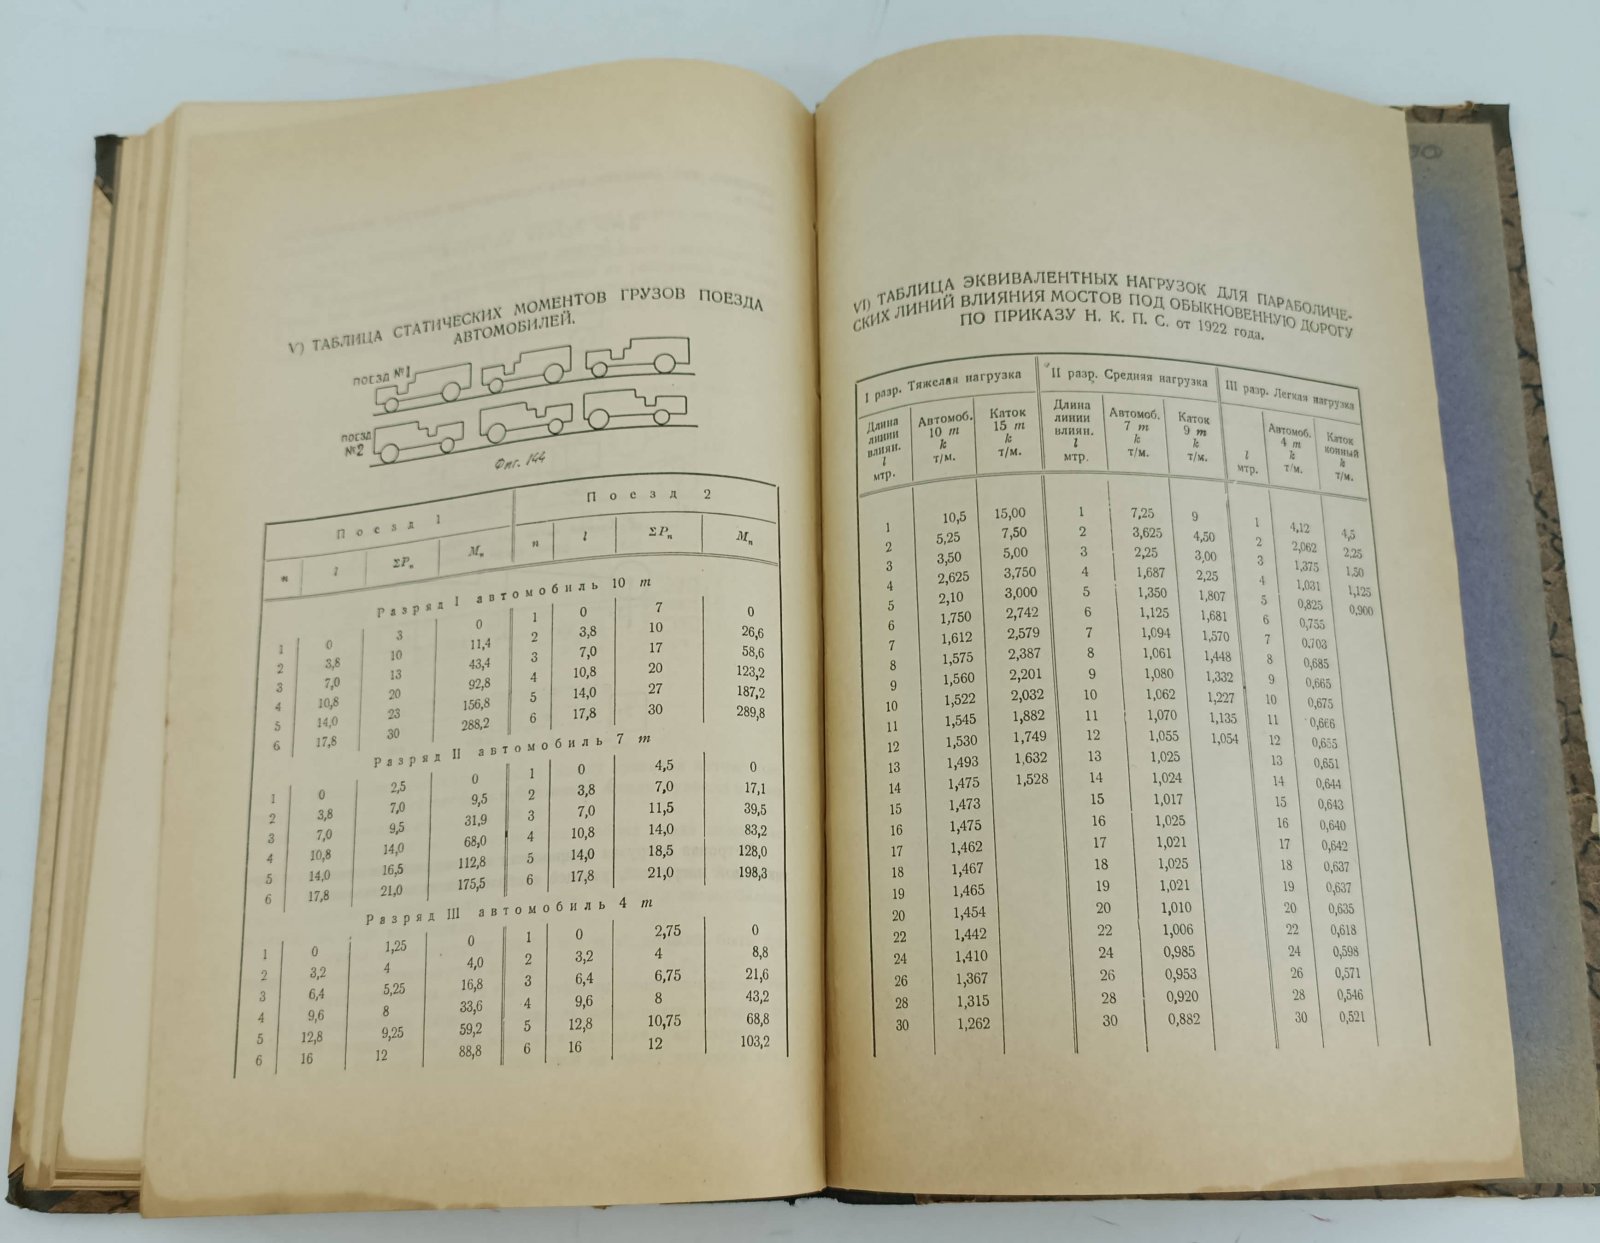 V) ТАБЛИЦА СТАТИЧЕСКИХ МОМЕНТОВ ГРУЗОВ ПОЕЗДА
АВТОМОБИЛЕЙ.
ПОЕЗД №1
ПОЕЗД
№2
Фиг. 144
Поезд 1 Поезд 2
n l ΣPₙ Mₙ n l ΣPₙ Mₙ
Разряд I автомобиль 10 т
1 0 3 0 1 0 7 0
2 3,8 10 11,4 2 3,8 10 26,6
3 7,0 13 43,4 3 7,0 17 58,6
4 10,8 20 92,8 4 10,8 20 123,2
5 14,0 23 156,8 5 14,0 27 187,2
6 17,8 30 288,2 6 17,8 30 289,8
Разряд II автомобиль 7 т
1 0 2,5 0 1 0 4,5 0
2 3,8 7,0 9,5 2 3,8 7,0 17,1
3 7,0 9,5 31,9 3 7,0 11,5 39,5
4 10,8 14,0 68,0 4 10,8 14,0 83,2
5 14,0 16,5 112,8 5 14,0 18,5 128,0
6 17,8 21,0 175,5 6 17,8 21,0 198,3
Разряд III автомобиль 4 т
1 0 1,25 0 1 0 2,75 0
2 3,2 4 4,0 2 3,2 4 8,8
3 6,4 5,25 16,8 3 6,4 6,75 21,6
4 9,6 8 33,6 4 9,6 8 43,2
5 12,8 9,25 59,2 5 12,8 10,75 68,8
6 16 12 88,8 6 16 12 103,2
VI) ТАБЛИЦА ЭКВИВАЛЕНТНЫХ НАГРУЗОК ДЛЯ ПАРАБОЛИЧЕ-
СКИХ ЛИНИЙ ВЛИЯНИЯ МОСТОВ ПОД ОБЫКНОВЕННУЮ ДОРОГУ
ПО ПРИКАЗУ Н. К. П. С. от 1922 года.
I разр. Тяжелая нагрузка II разр. Средняя нагрузка III разр. Легкая нагрузка
Длина Автомоб. Каток Длина Автомоб. Каток Автомоб. Каток
линии 10 т 15 т линии 7 т 9 т 4 т конный
влиян. k k влиян. k k k k
l т/м. т/м. l т/м. т/м. l т/м. т/м.
мтр. мтр. мтр.
1 10,5 15,00 1 7,25 9 1 4,12 4,5
2 5,25 7,50 2 3,625 4,50 2 2,062 2,25
3 3,50 5,00 3 2,25 3,00 3 1,375 1,50
4 2,625 3,750 4 1,687 2,25 4 1,031 1,125
5 2,10 3,000 5 1,350 1,807 5 0,825 0,900
6 1,750 2,742 6 1,125 1,681 6 0,755
7 1,612 2,579 7 1,094 1,570 7 0,703
8 1,575 2,387 8 1,061 1,448 8 0,685
9 1,560 2,201 9 1,080 1,332 9 0,665
10 1,522 2,032 10 1,062 1,227 10 0,675
11 1,545 1,882 11 1,070 1,135 11 0,666
12 1,530 1,749 12 1,055 1,054 12 0,655
13 1,493 1,632 13 1,025 13 0,651
14 1,475 1,528 14 1,024 14 0,644
15 1,473 15 1,017 15 0,643
16 1,475 16 1,025 16 0,640
17 1,462 17 1,021 17 0,642
18 1,467 18 1,025 18 0,637
19 1,465 19 1,021 19 0,637
20 1,454 20 1,010 20 0,635
22 1,442 22 1,006 22 0,618
24 1,410 24 0,985 24 0,598
26 1,367 26 0,953 26 0,571
28 1,315 28 0,920 28 0,546
30 1,262 30 0,882 30 0,521